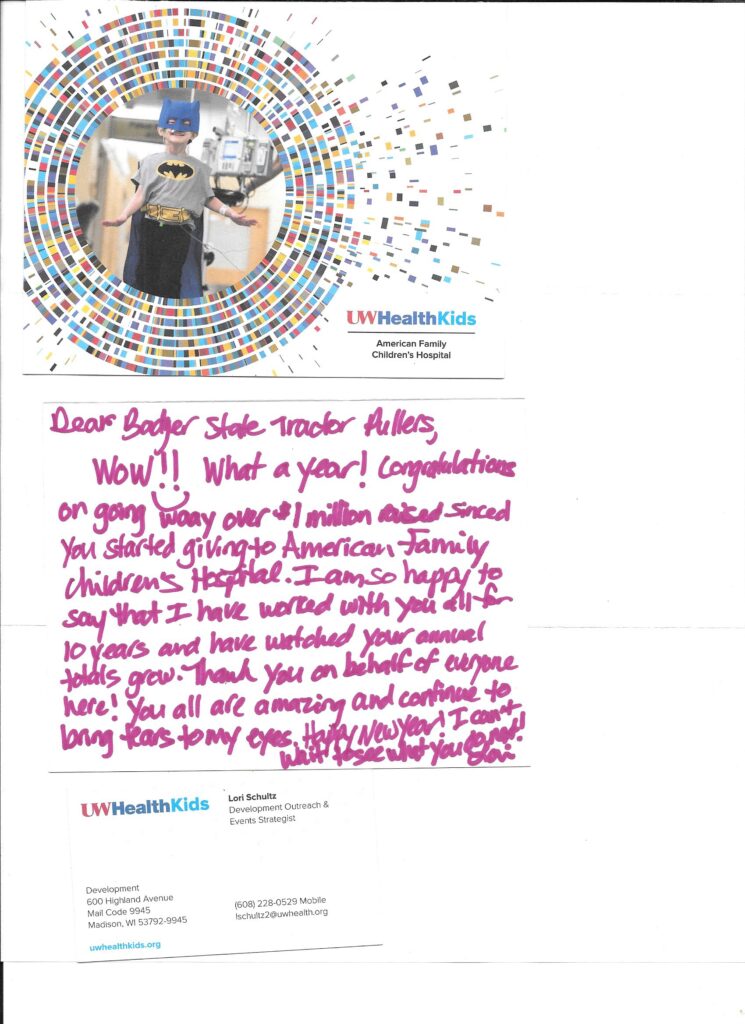 UWHealthKids
American Family
Children's Hospital
Dear Badger State Tractor Pullers,
Wow!! What a year! Congratulations
on going waay over $1 million raised sinced
you started giving to American Family
Children's Hospital. I am so happy to
say that I have worked with you all for
10 years and have watched your annual
totals grow. Thank you on behalf of everyone
here! You all are amazing and continue to
bring tears to my eyes. Happy New Year! I can't
wait to see what you do next!
Lori
UWHealthKids
Lori Schultz
Development Outreach &
Events Strategist
Development
600 Highland Avenue
Mail Code 9945
Madison, WI 53792-9945
(608) 228-0529 Mobile
lschultz2@uwhealth.org
uwhealthkids.org